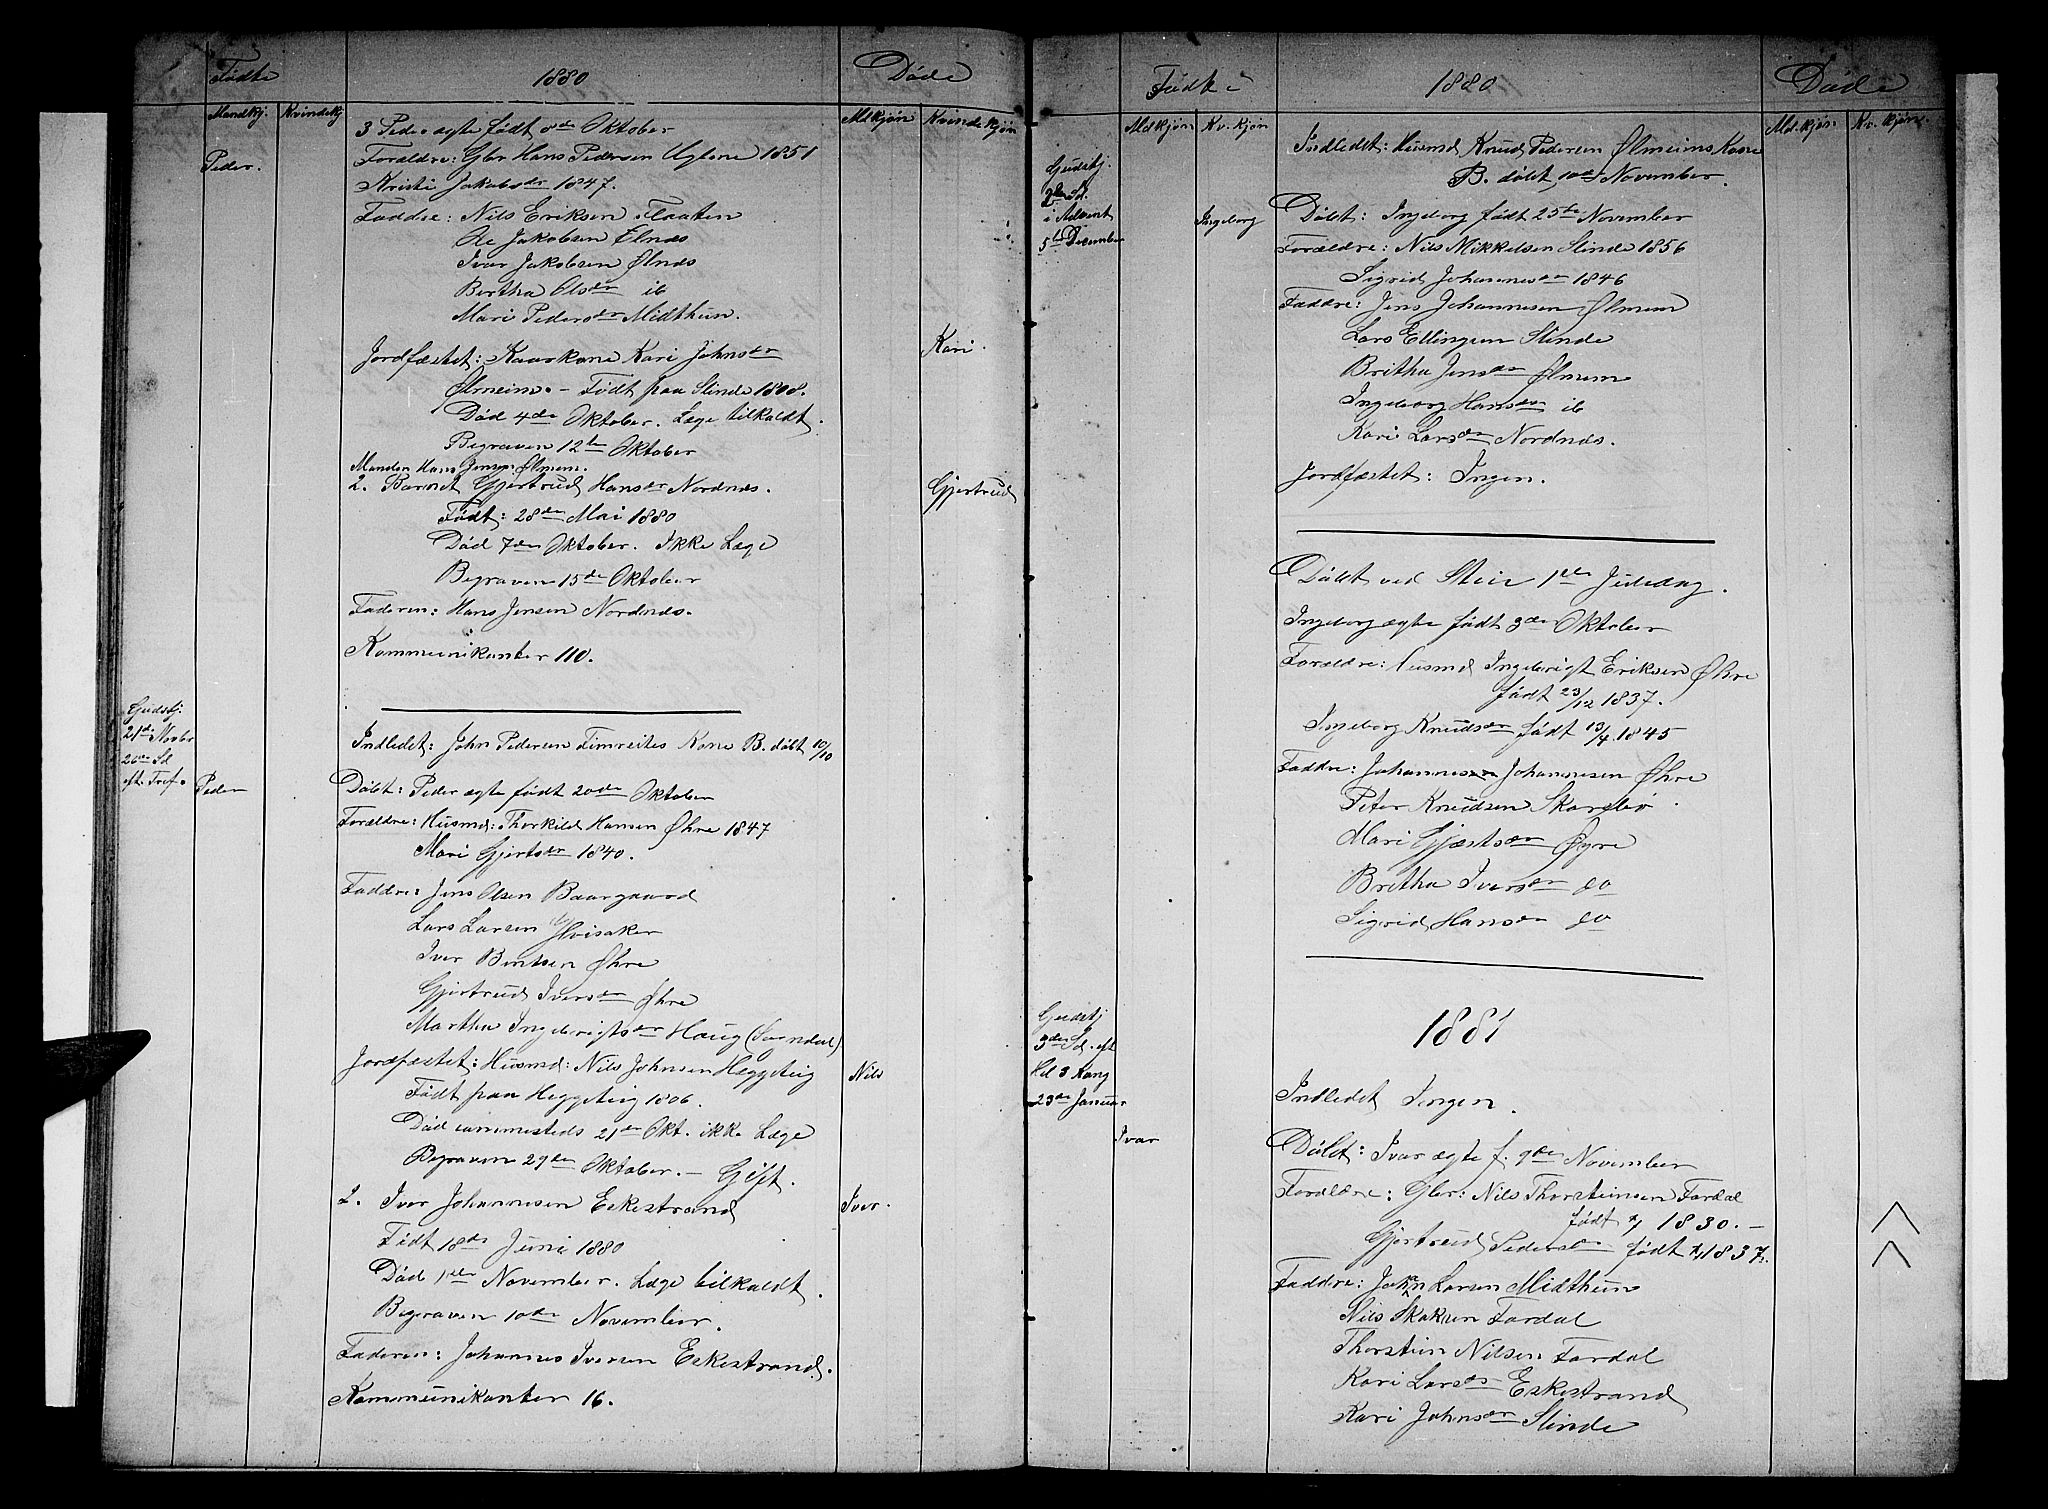 Fødte
1880
Døde
Mandkj.
Kvindekj
Mdkjøn
Kvindekjøn
3 Peder ægte født 8de Oktober
Peder.
Forældre: Gbr Hans Pedersen 1851
Kristi Jakobsdr 1847.
Faddre: Nils Eriksen Flaaten
Ole Jakobsen Ølnæs
Ivar Jakobsen Ølnæs
Bertha Olsdr ib
Mari Pedersdr Midthun.
Jordfæstet: Kaarkone Kari Johnsdr
Kari.
Ølmeim. - Født paa Slinde 1808.
Død 4de Oktober. Læge tilkaldt.
Begraven 12te Oktober
Manden Hans Jensen Ølmem.
2. Barnet Gjertrud Hansdr Nordnæs.
Gjertrud
Født: 28de Mai 1880
Død 7de Oktober. Ikke Læge
Begraven 15de Oktober
Faderen: Hans Jensen Nordnæs.
Kommunikanter 110.
Gudstj.
21de Novbr
26de Sd
eft. Tref.
Indledet: John Pedersen Timreites Kone B. døbt 10/10
Peder
Døbt: Peder ægte født 20de Oktober
Forældre: Husmd: Thorkild Hansen Øhre 1847
Mari Gjertsdr 1840.
Faddre: Jens Olsen Baargaard
Lars Larsen Hvisaker
Iver Bentsen Øhre
Gjertrud Iversdr Øhre
Martha Ingebrigtsdr Haug (Sogndal)
Jordfæstet: Husmd: Nils Johnsen Heggeteig
Nils
Født paa Heggeteig 1806.
Død sammesteds 21de Okt. ikke Læge
Begraven 29de Oktober. - Gift.
2. Iver Johannesen Eskestrand
Iver.
Født 18de Juni 1880
Død 1ste November. Læge tilkaldt.
Begraven 10de November.
Faderen: Johannes Iversen Eskestrand.
Kommunikanter 16.
Fødte
1880
Døde
Mdkjøn
Kv. kjøn
Md. kjøn
Kv. kjøn
Indledet: Husmd Knud Pedersen Ølmeims Kone
B. døbt 10de November.
Gudstj.
2den Sd.
i Advent
5te December
Ingeborg
Døbt: Ingeborg født 25te November
Forældre: Nils Mikkelsen Slinde 1856
Sigrid Johannesdr 1846
Faddre: Jens Johannesen Ølmem
Lars Ellingsen Slinde
Britha Jensdr Ølmem
Ingeborg Hansdr ib
Kari Larsdr Nordnæs.
Jordfæstet: Ingen.
Døbt ved Steie 1ste Juledag.
Ingeborg ægte født 3de Oktober
Forældre: Husmd Ingebrigt Eriksen Øhre
født 23/12 1837.
Ingeborg Knudsdr født 13/4 1845
Faddre: Johannes Johannesen Øhre
Peter Knudsen Skarsbø
Mari Gjertsdr Øyre
Britha Iversdr do
Sigrid Hansdr do
1881
Gudstj
3die Sd. eft
Hel 3 Kong
23de Januar
Indledet Ingen.
Ivar
Døbt: Ivar ægte f. 9de November
Forældre: Gbr: Nils Thorsteinsen Fardal
født 1830. -
Gjertrud Pedersdr født 1837.
Faddre: Johan Larsen Midthun
Nils Skaksen Fardal
Thorstein Nilsen Fardal
Kari Larsdr Eskestrand
Kari Johnsdr Slinde